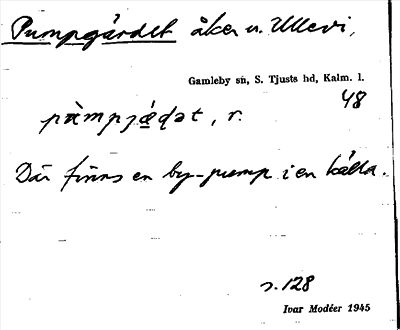 Pumpgärdet åker u. Ullevi,
Gamleby sn, S. Tjusts hd, Kalm. l.
48
pùmpjǽḍət, r.
Där finns en by-pump i en källa.
s. 128
Ivar Modéer 1945